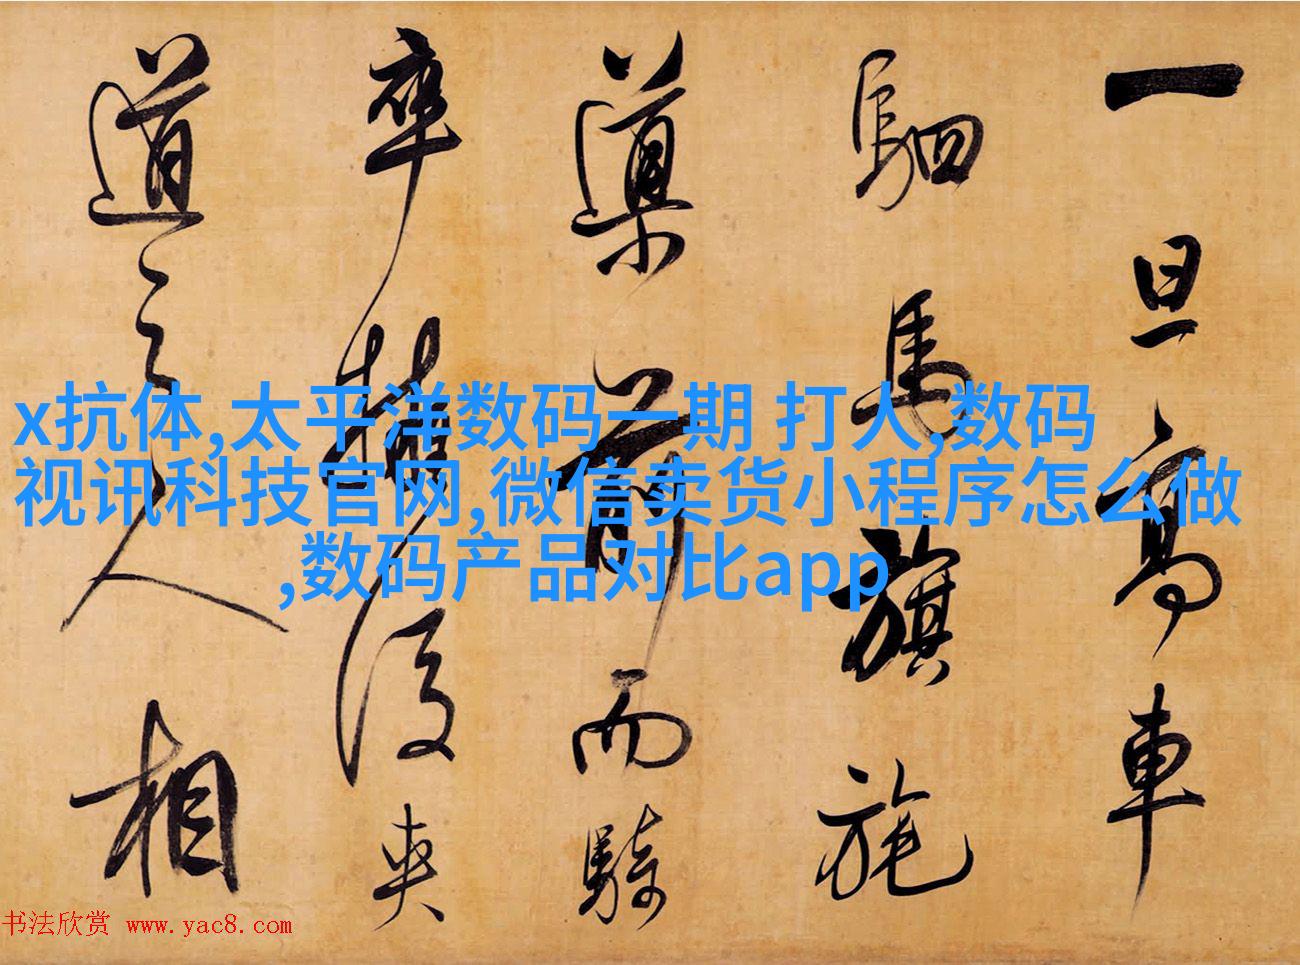 一旦高車
駟馬旗旄
導前而騎
卒擁後夾
道之人相
x抗体,太平洋数码一期 打人,数码
视讯科技官网,微信卖货小程序怎么做
,数码产品对比app
书法欣赏 www.yac8.com